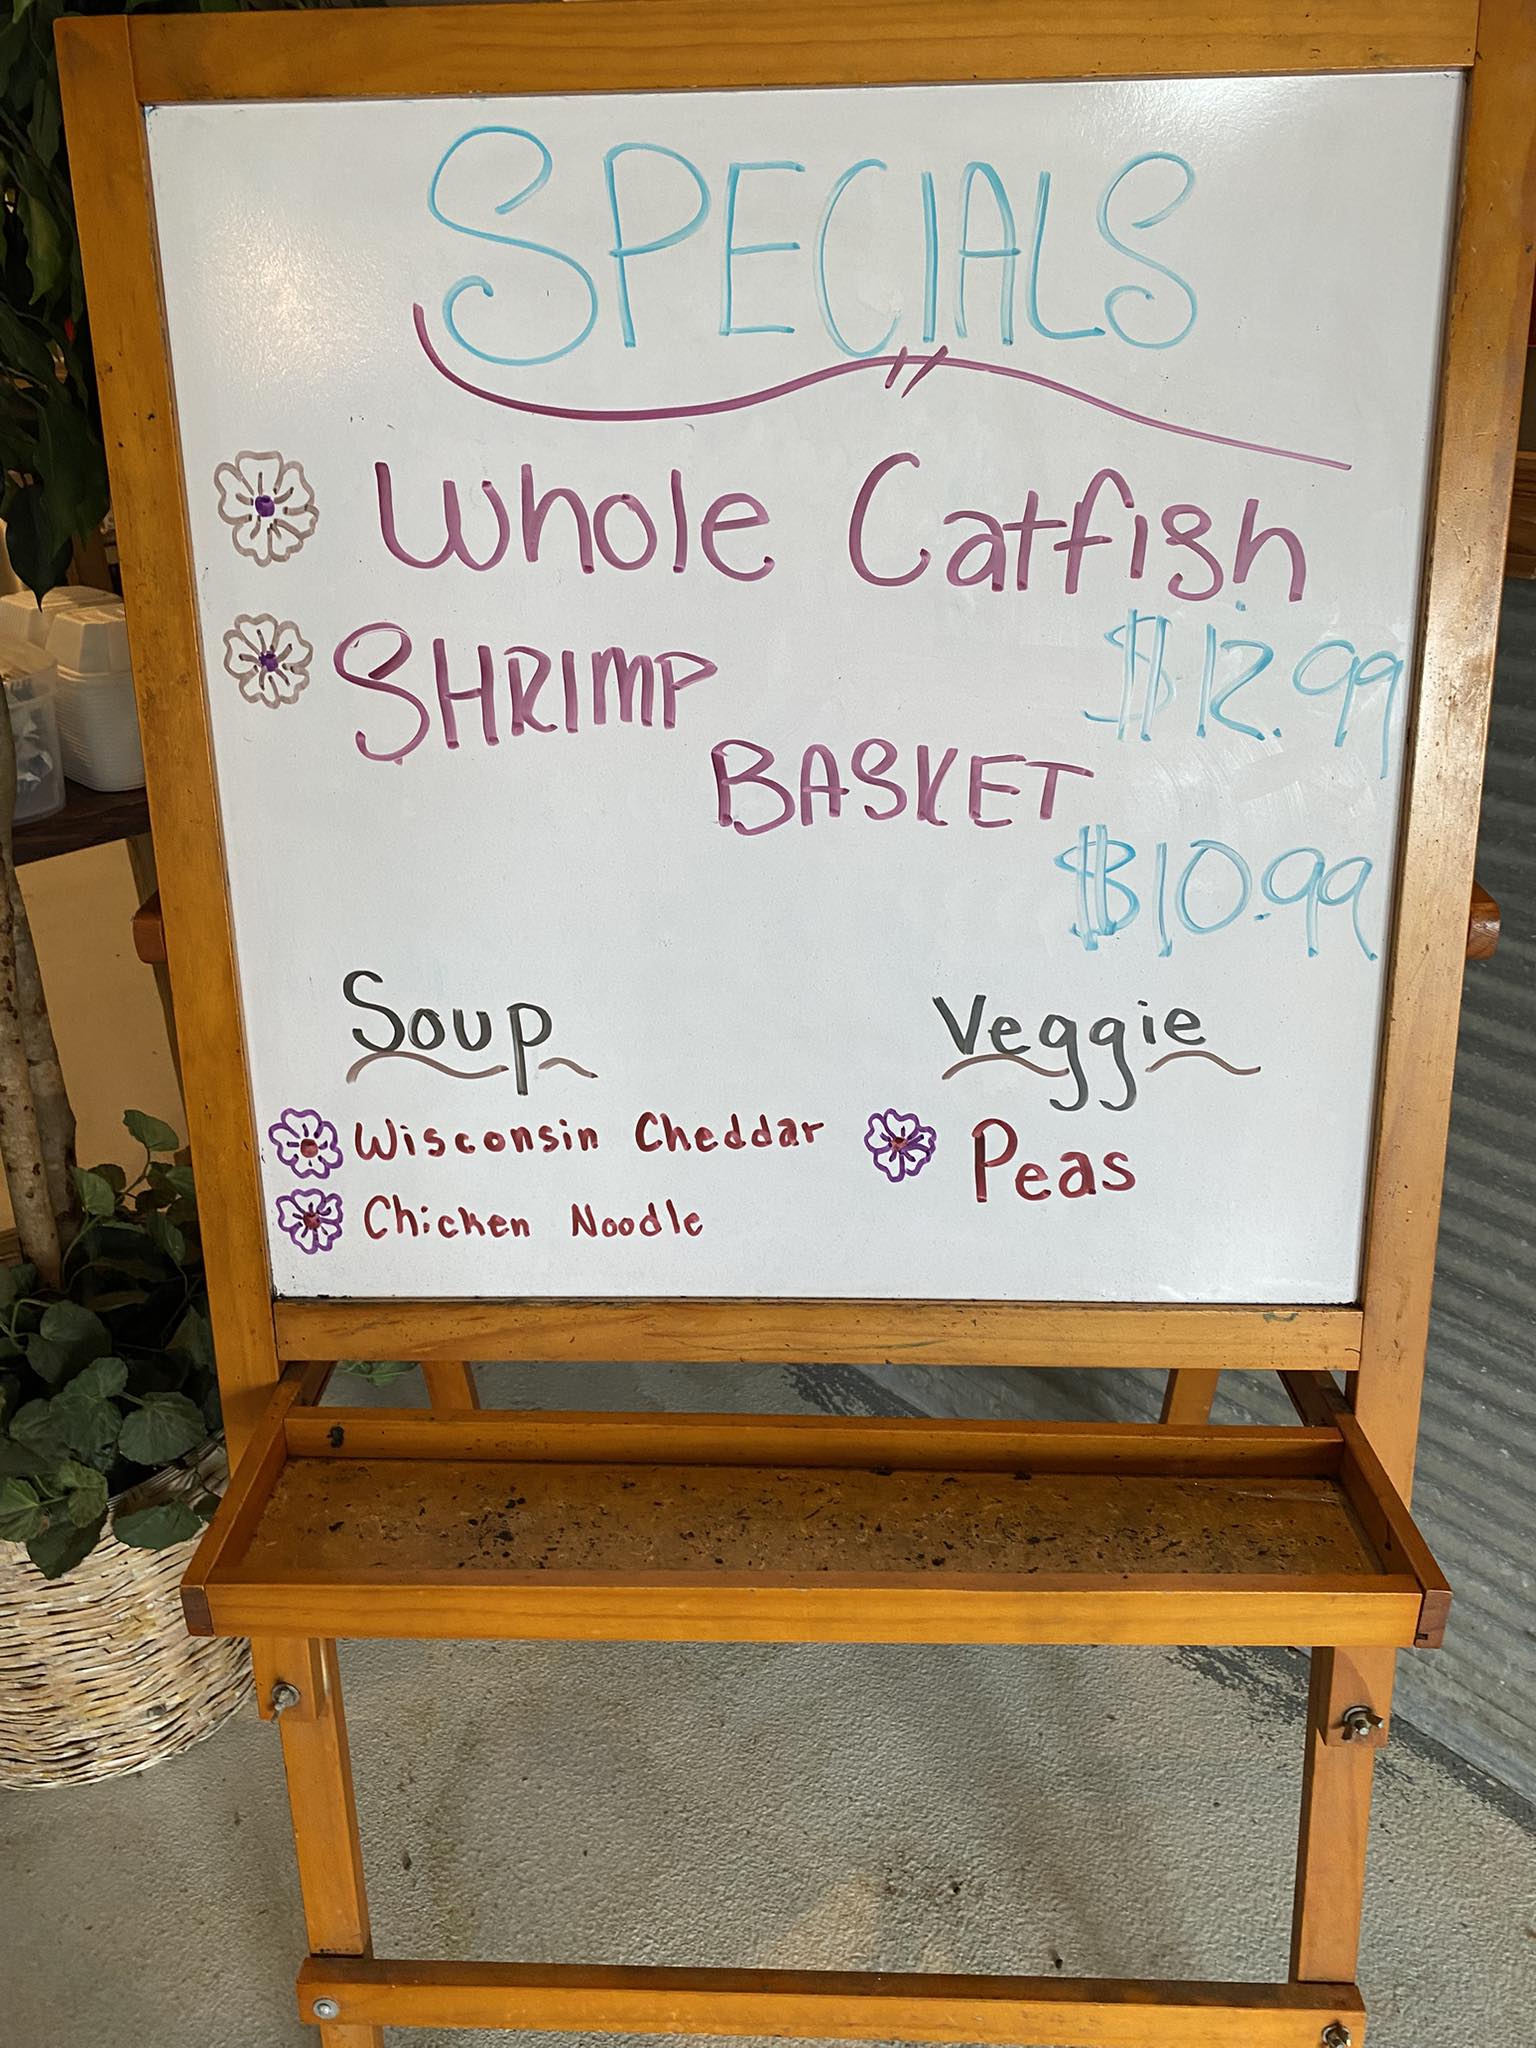 SPECIALS
Whole Catfish
$12.99
SHRIMP
BASKET
$10.99
Soup
Wisconsin Cheddar
Chicken Noodle
Veggie
Peas